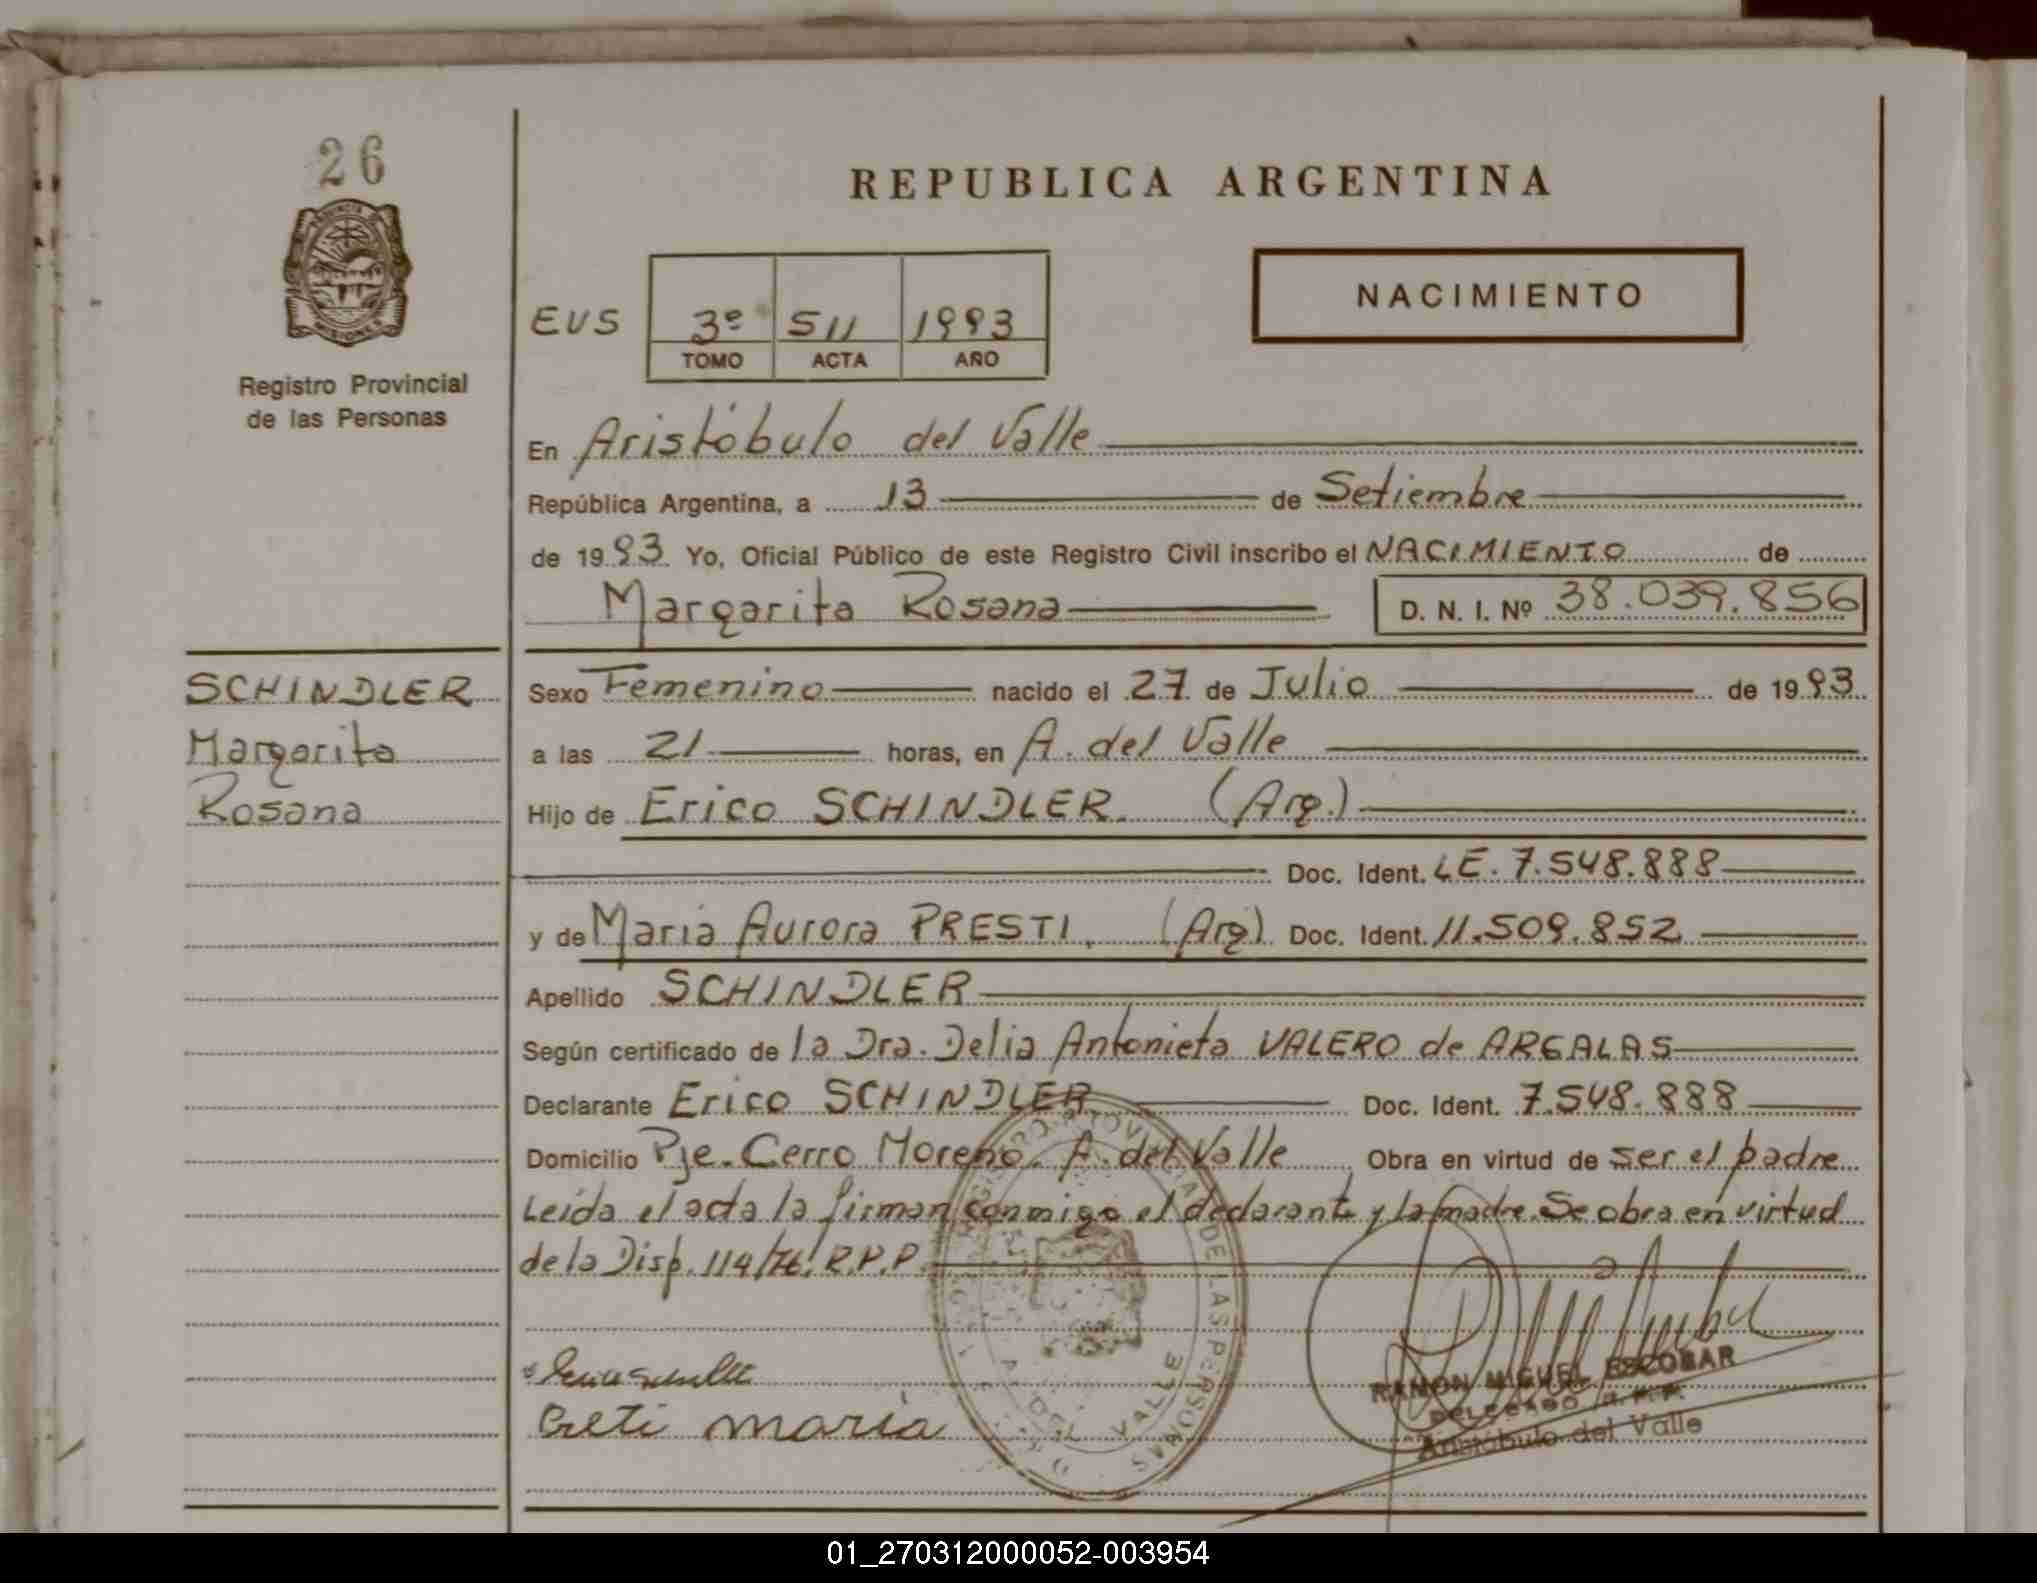 26
PROVINCIA DE
MISIONES
Registro Provincial
de las Personas
SCHINDLER
Margarita
Rosana
REPUBLICA ARGENTINA
NACIMIENTO
EUS 3º 511 1993
TOMO ACTA AÑO
En Aristóbulo del Valle
República Argentina, a 13 de Setiembre
de 1993. Yo, Oficial Público de este Registro Civil inscribo el NACIMIENTO de
Margarita Rosana D. N. I. Nº 38.039.856
Sexo Femenino nacido el 27 de Julio de 1993.
a las 21 horas, en A. del Valle
Hijo de Erico SCHINDLER. (Arg.)
Doc. Ident. LE. 7.548.888
y de Maria Aurora PRESTI. (Arg) Doc. Ident. 11.509.852
Apellido SCHINDLER
Según certificado de la Dra. Delia Antonieta VALERO de ARGALAS
Declarante Erico SCHINDLER Doc. Ident. 7.548.888
Domicilio Pje. Cerro Moreno. A. del Valle Obra en virtud de ser el padre
Leída el acta la firman conmigo el declarante y la madre. Se obra en virtud
de la Disp. 114/76. R.P.P.
maria
RAMON MIGUEL ESCOBAR
DELEGADO R.P.P.
Aristóbulo del Valle
A. DEL VALLE
DE LAS PERSONAS
01_270312000052-003954